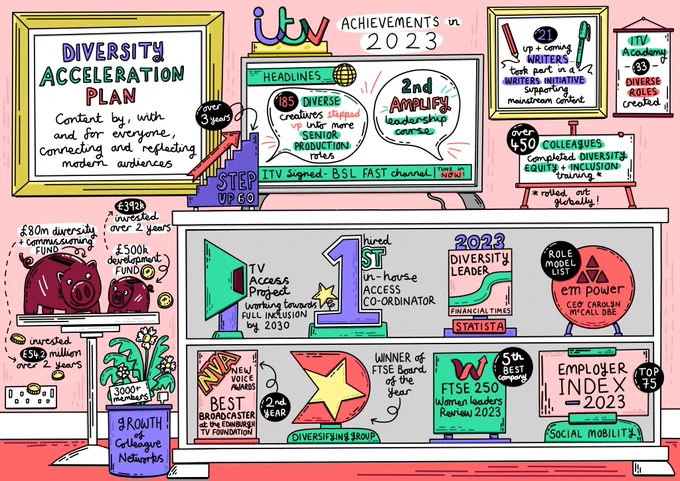 itv
ACHIEVEMENTS in
2023
DIVERSITY
ACCELERATION
PLAN
Content by, with
and for everyone,
connecting and reflecting
modern audiences
over
3 years
STEP
UP 60
HEADLINES
185 DIVERSE
creatives stepped
up into more
SENIOR
PRODUCTION
roles
2nd
AMPLIFY
leadership
course
ITV Signed - BSL FAST channel
TUNE in
NOW!
21
up + coming
WRITERS
took part in a
WRITERS INITIATIVE
supporting
mainstream content
ITV
Academy
33
DIVERSE
ROLES
created
over
450 COLLEAGUES
completed DIVERSITY
EQUITY + INCLUSION
training *
* rolled out
globally!
£80m diversity
+ commissioning
FUND
£392k
invested
over 2 years
£500k
development
FUND
invested
£54.2 million
over 2 years
3000+
members
GROWTH
of
Colleague
Networks
TV
Access
Project
working towards
FULL INCLUSION
by 2030
hired
1ST
in-house
ACCESS
CO-ORDINATOR
2023
DIVERSITY
LEADER
FINANCIAL TIMES
STATISTA
ROLE
MODEL
LIST
empower
CEO CAROLYN
McCALL DBE
NVA
NEW
VOICE
AWARDS
BEST
BROADCASTER
at the EDINBURGH
TV FOUNDATION
2nd
YEAR
DIVERSIFYING GROUP
WINNER of
FTSE Board
of the
year
5th
BEST
company
FTSE 250
Women Leaders
Review 2023
EMPLOYER
INDEX
-2023
TOP
75
SOCIAL MOBILITY